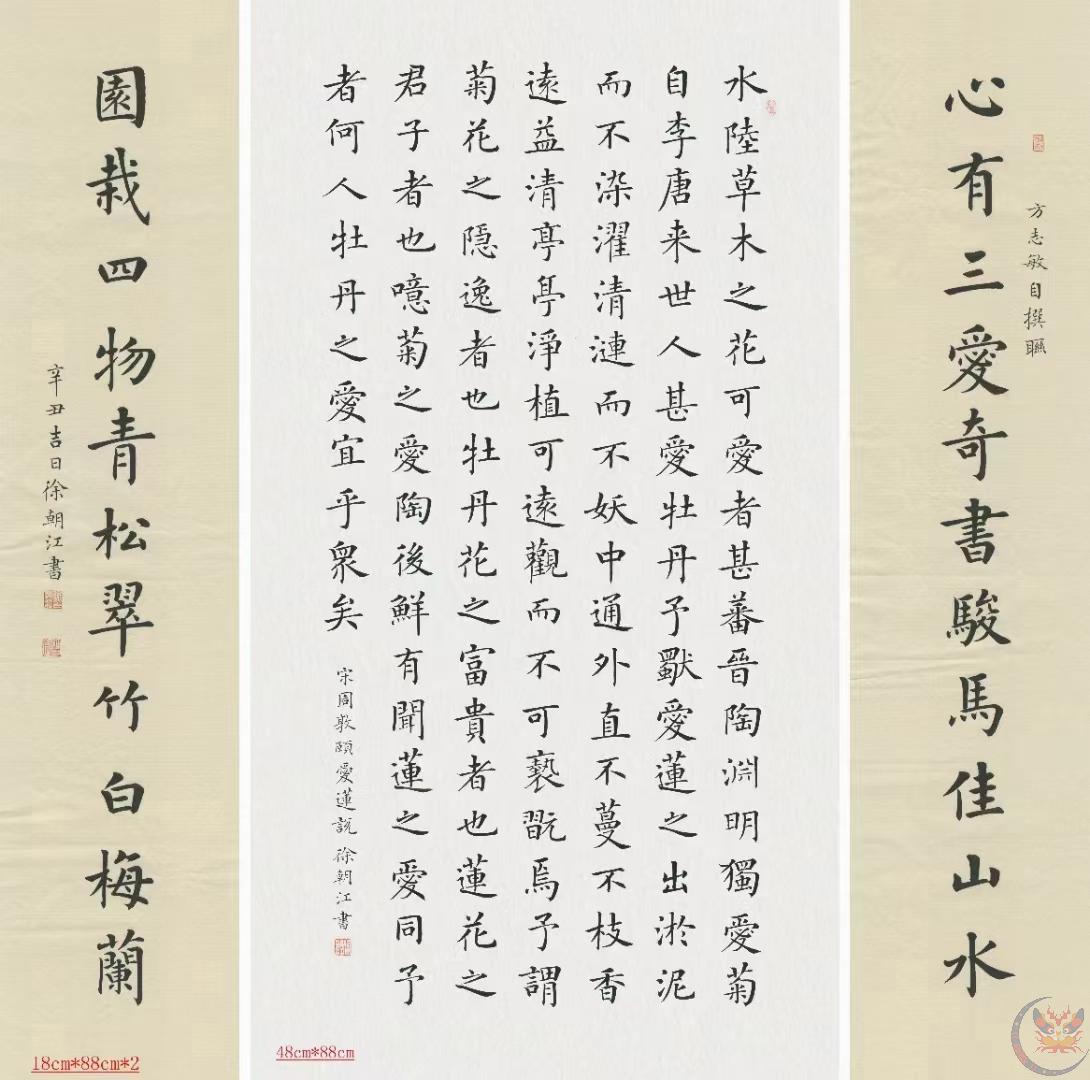 方志敏自撰聯
心有三愛奇書駿馬佳山水
水陸草木之花可愛者甚蕃晉陶淵明獨愛菊
自李唐来世人甚愛牡丹予獸愛蓮之出淤泥
而不染濯清漣而不妖中通外直不蔓不枝香
遠益清亭亭淨植可遠觀而不可褻翫焉予謂
菊花之隱逸者也牡丹花之富貴者也蓮花之
君子者也噫菊之愛陶後鮮有聞蓮之愛同予
者何人牡丹之愛宜乎衆矣
宋周敦頤愛蓮説 徐朝江書
園栽四物青松翠竹白梅蘭
辛丑吉日徐朝江書
48cm*88cm
18cm*88cm*2